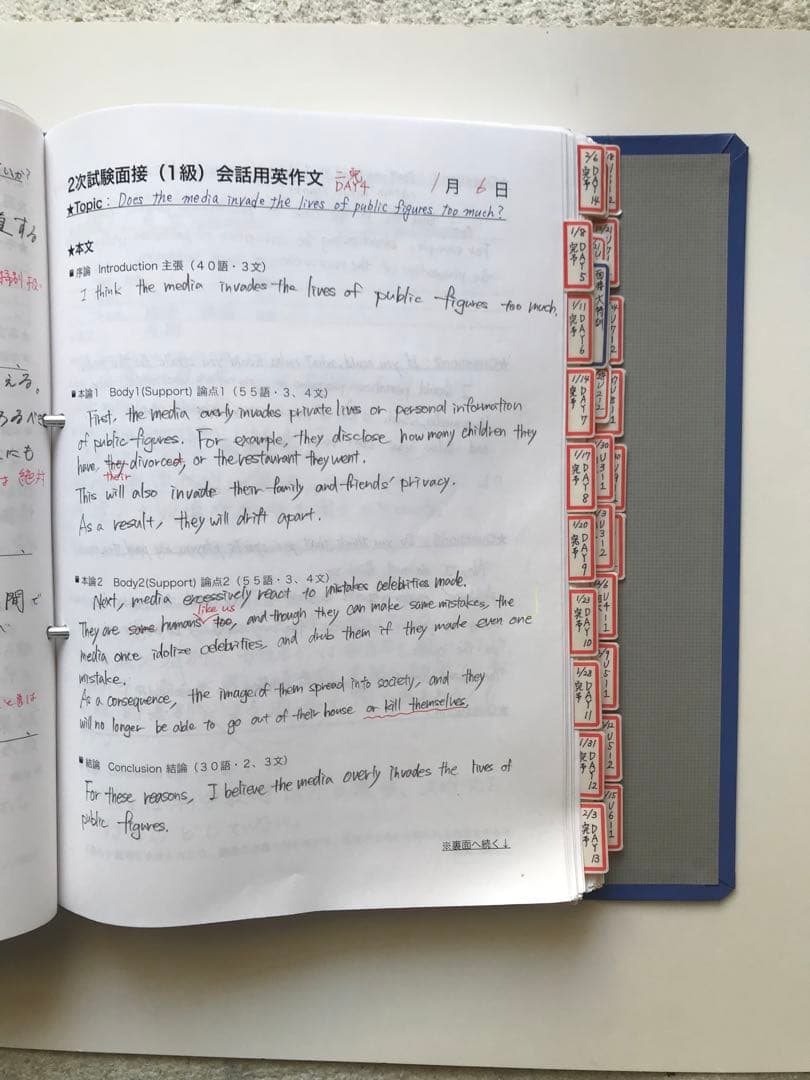 2次試験面接(1級)会話用英作文 二完 DAY4 1月6日
★Topic : Does the media invade the lives of public figures too much?
★本文
■序論 Introduction 主張(40語・3文)
I think the media invades the lives of public figures too much.
■本論1 Body1(Support) 論点1(55語・3、4文)
First, the media overly invades private lives or personal information
of public figures. For example, they disclose how many children they
have, they divorced, or the restaurant they went.
their
This will also invade their family and friends' privacy.
As a result, they will drift apart.
■本論2 Body2(Support) 論点2(55語・3、4文)
Next, media excessively react to mistakes celebrities made.
like us
They are some humans too, and though they can make some mistakes, the
media once idolize celebrities, and drub them if they made even one
mistake.
As a consequence, the image of them spread into society, and they
will no longer be able to go out of their house or kill themselves.
■結論 Conclusion 結論(30語・2、3文)
For these reasons, I believe the media overly invades the lives of
public figures.
※裏面へ続く↓
2/6 DAY14
1/8 DAY5
1/11 DAY6
1/14 DAY7
1/17 DAY8
1/20 DAY9
1/23 DAY10
1/28 DAY11
1/31 DAY12
2/3 DAY13